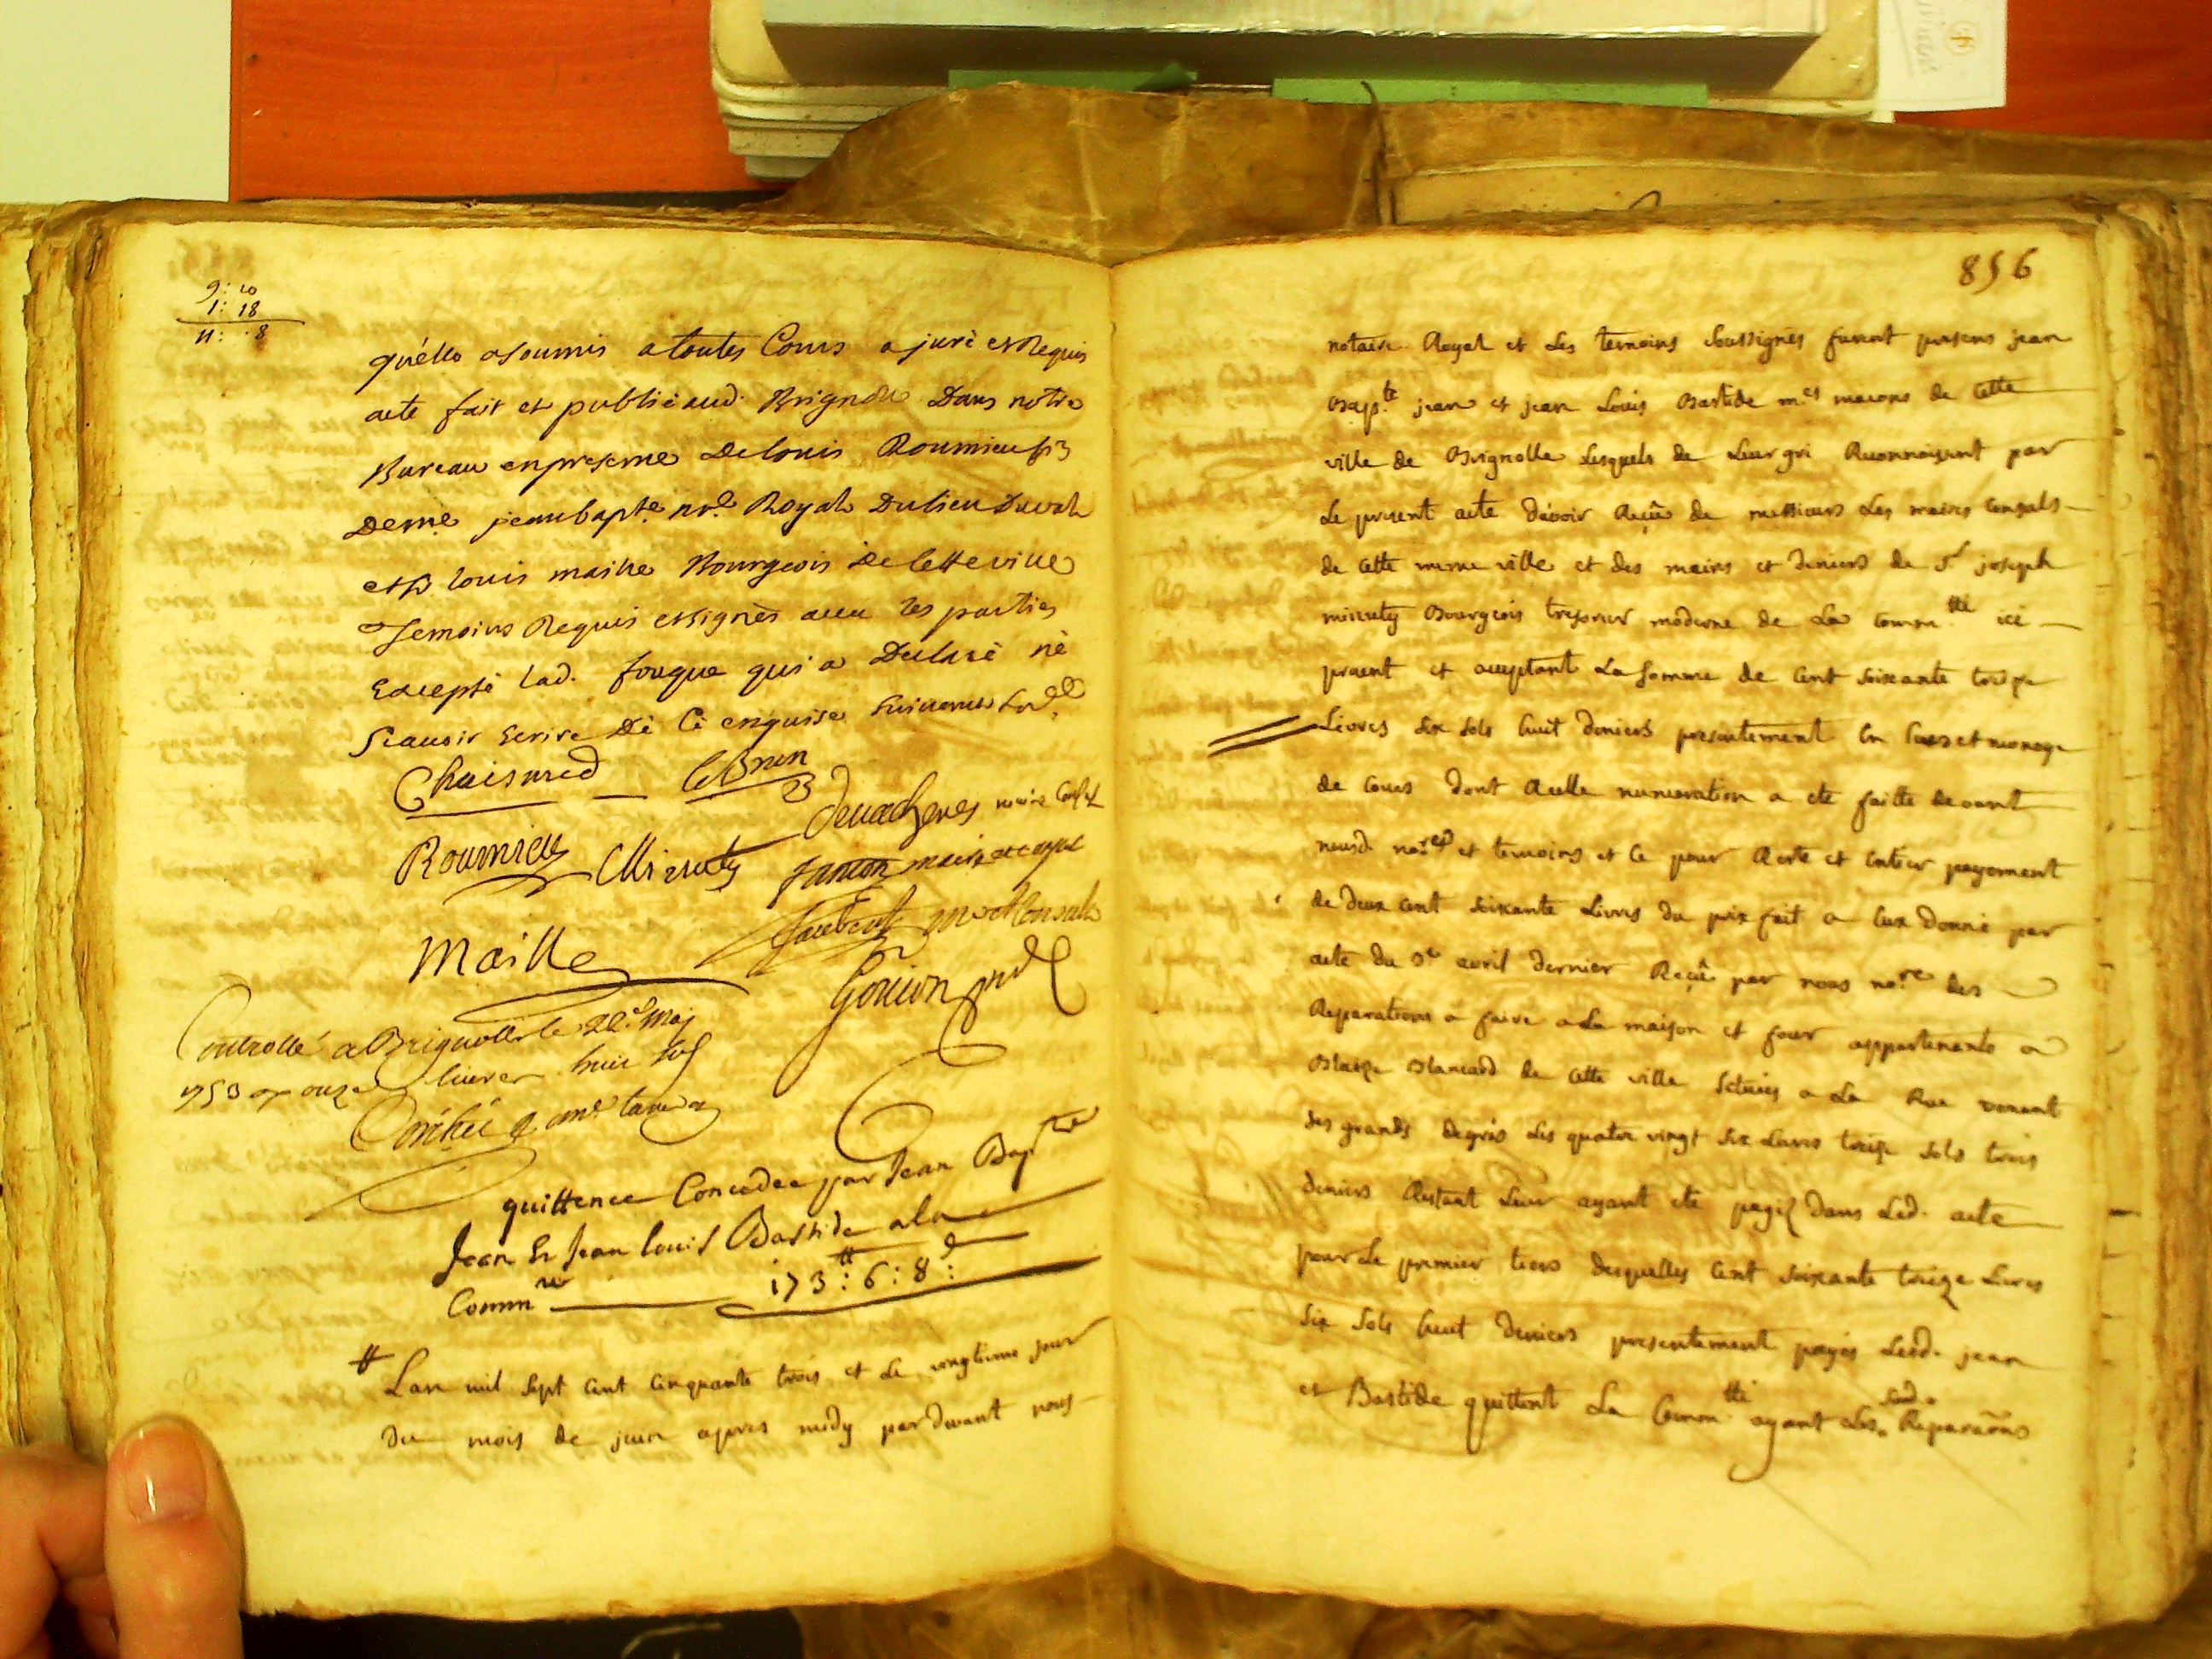 9: 10
1: 18
11: . 8
qu'elle a soumis a toutes Cours a juré et Requis
acte fait et publié aud. Brignolle Dans notre
Bureau en presence de louis Roumieu fils
de me jean bapte nre Royal Du lieu Duval
et sr louis maille Bourgeois de Cette ville
Temoins Requis et signés avec les parties
Excepté lad. fouque qui a Declaré ne
scavoir Ecrire De Ce enquise suivant lord.
Chaisneed lebrun
Roumieu Mirauty maire Consul
fanton maire
Jaubert Consul
Maille
Gouion nre
Controllé a Brignolle le 22e May
1753 onze livres huit sols
quittence Concedée par Jean Bapte
Jean Et Jean louis Bastide a la
Commte 173 tt : 6 : 8 d :
tt Lan mil sept cent cinquante trois et Le vingtieme jour
du mois de juin apres midy pardevant nous
856
notaire Royal et Les temoins soussignés furent presens jean
Bapte jean et jean Louis Bastide mes macons de Cette
ville de Brignolle Lesquels de Leur gré Reconnoisent par
Le present acte d'avoir Reçû de messieurs Les maires Consuls
de Cette meme ville et des mains et deniers de Sr joseph
mirauty Bourgeois tresorier moderne de La Commtté ici
present et acceptant La somme de Cent soixante treize
Livres six sols huit deniers presentement En et monoye
de Cours dont Réelle numeration a eté faitte devant
nousd. nore et temoins et Ce pour Reste et Entier payement
de deux Cent soixante Livres du prix fait a Eux Donné par
acte du avril dernier Reçû par nous nore des
Reparations a faire a La maison et four appartenants a
Blaize Blancard de Cette ville scitués a La Rue venant
des grands degrés Les quatre vingt six Livres treize sols trois
deniers Restant Leur ayant eté payés dans Led. acte
pour Le premier tiers desquelles Cent soixante treize Livres
six sols huit deniers presentement payés Lesd. jean
et Bastide quittent La Commtté ayant Les susd. Reparaõns